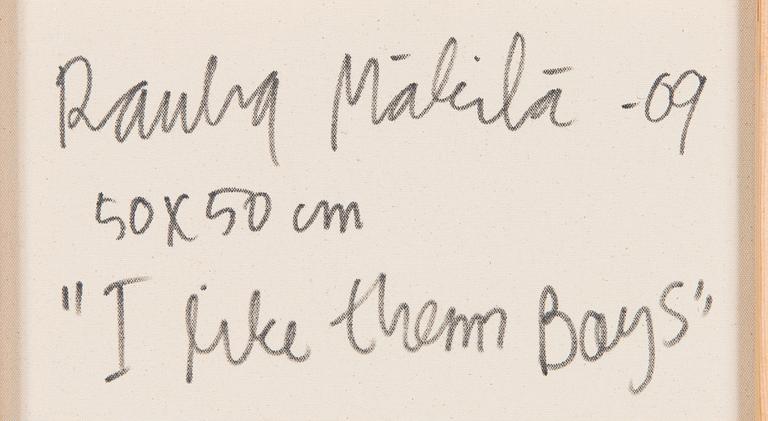 Rauha Mäkilä -09
50x50 cm
"I like them Boys"